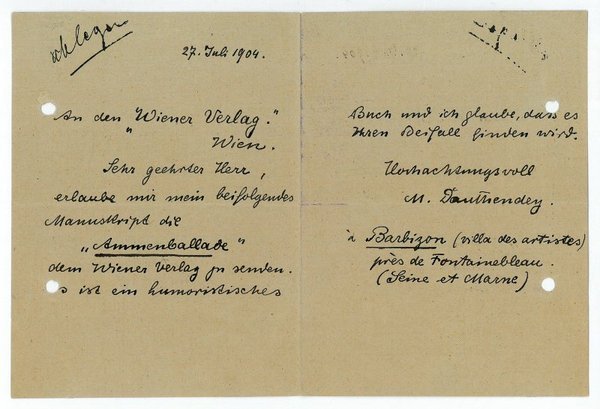 ablegen
27. Juli 1904.
An den "Wiener Verlag."
Wien.
Sehr geehrter Herr,
erlaube mir mein beifolgendes
Manuskript die
"Ammenballade"
dem Wiener Verlag zu senden.
s ist ein humoristisches
Buch und ich glaube, dass es
Ihren Beifall finden wird.
Hochachtungsvoll
M. Dauthendey.
à Barbizon (villa des artistes)
près de Fontainebleau.
(Seine et Marne)